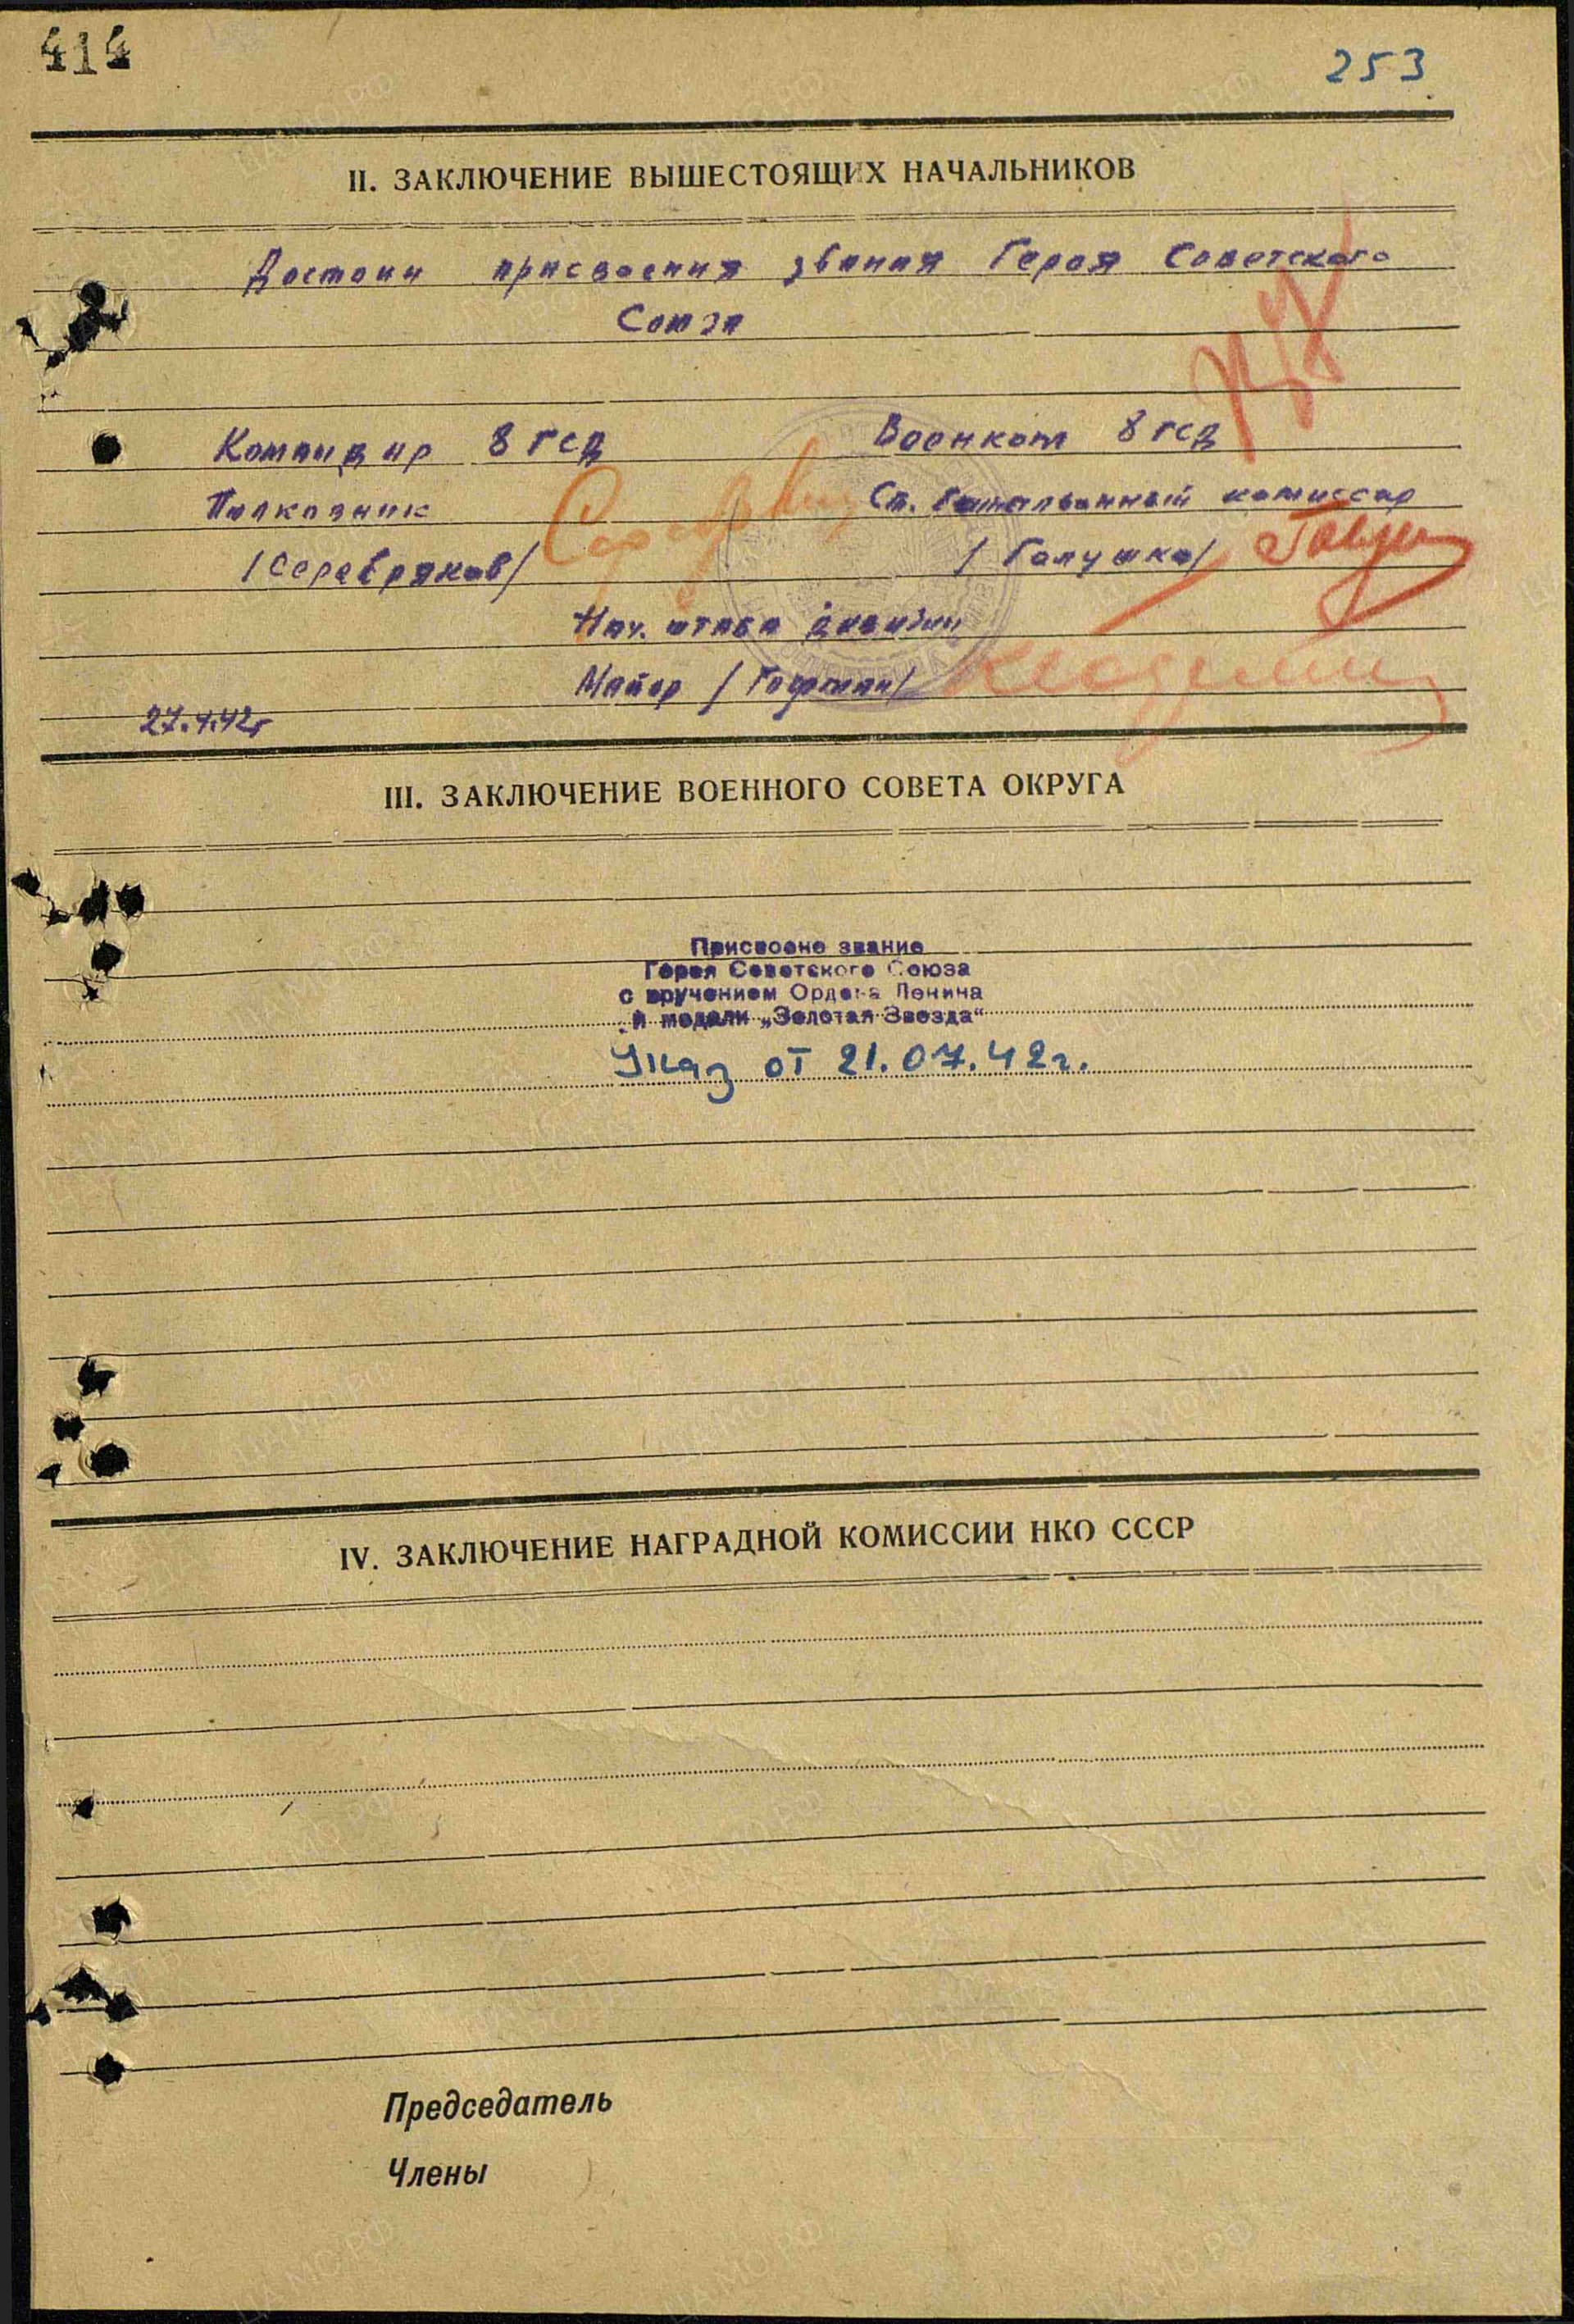 414
253
II. ЗАКЛЮЧЕНИЕ ВЫШЕСТОЯЩИХ НАЧАЛЬНИКОВ
Достоин присвоения звания Героя Советского
Союза
Командир 8 гсд Военком 8 гсд
Полковник Ст. батальонный комиссар
/Серебряков/ /Галушко/
Нач. штаба дивизии
Майор /Гофман/
27.4.42г
III. ЗАКЛЮЧЕНИЕ ВОЕННОГО СОВЕТА ОКРУГА
Присвоено звание
Героя Советского Союза
с вручением Ордена Ленина
и медали „Золотая Звезда“
Указ от 21.07.42г.
IV. ЗАКЛЮЧЕНИЕ НАГРАДНОЙ КОМИССИИ НКО СССР
Председатель
Члены